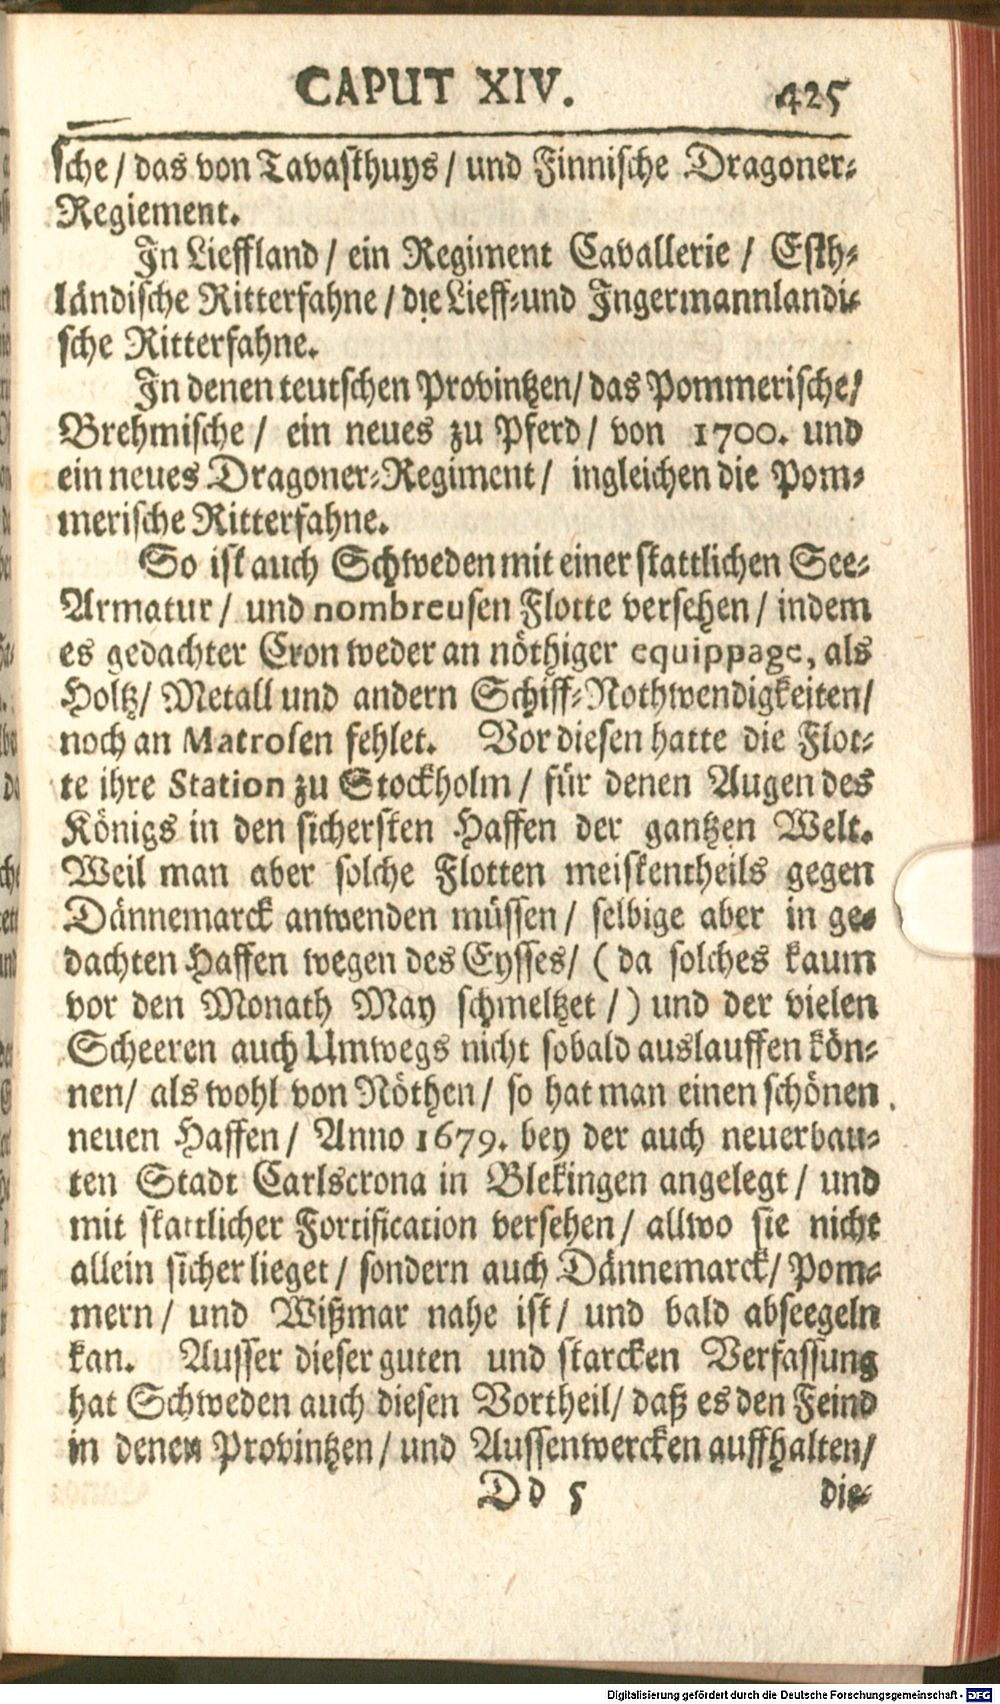 CAPUT XIV. 425
sche / das von Tavasthuys / und Finnische Dragoner-
Regiement.
In Lieffland / ein Regiment Cavallerie / Esth-
ländische Ritterfahne / die Lieff-und Ingermannlandi-
sche Ritterfahne.
In denen teutschen Provintzen / das Pommerische /
Brehmische / ein neues zu Pferd / von 1700. und
ein neues Dragoner-Regiment / ingleichen die Pom-
merische Ritterfahne.
So ist auch Schweden mit einer stattlichen See-
Armatur / und nombreusen Flotte versehen / indem
es gedachter Cron weder an nöthiger equippage, als
Holtz / Metall und andern Schiff-Nothwendigkeiten /
noch an Matrosen fehlet. Vor diesen hatte die Flot-
te ihre Station zu Stockholm / für denen Augen des
Königs in den sichersten Haffen der gantzen Welt.
Weil man aber solche Flotten meistentheils gegen
Dännemarck anwenden müssen / selbige aber in ge-
dachten Haffen wegen des Eysses / ( da solches kaum
vor den Monath May schmeltzet / ) und der vielen
Scheeren auch Umwegs nicht sobald auslauffen kön-
nen / als wohl von Nöthen / so hat man einen schönen
neuen Haffen / Anno 1679. bey der auch neuerbau-
ten Stadt Carlscrona in Blekingen angelegt / und
mit stattlicher Fortification versehen / allwo sie nicht
allein sicher lieget / sondern auch Dännemarck / Pom-
mern / und Wißmar nahe ist / und bald abseegeln
kan. Ausser dieser guten und starcken Verfassung
hat Schweden auch diesen Vortheil / daß es den Feind
in denen Provintzen / und Aussenwercken auffhalten /
Dd 5 die-
Digitalisierung gefördert durch die Deutsche Forschungsgemeinschaft - DFG